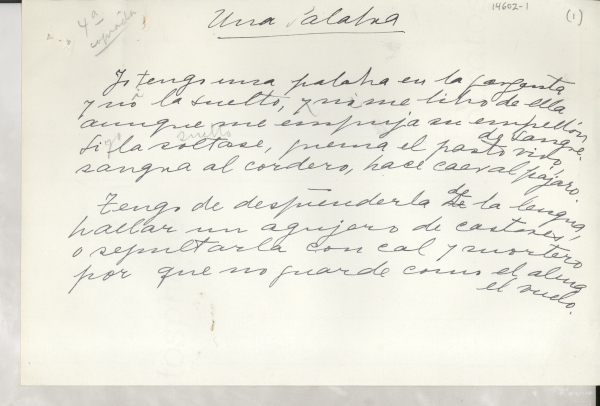 14602-1
(1)
4ª
copiada
Una Palabra
Yo tengo una palabra en la garganta
y no la suelto, y no me libro de ella
aunque me empuja su empellón
de sangre.
Si la soltase, quema el pasto vivo,
suelto
sangra al cordero, hace caer al pájaro.
Tengo de desprenderla de la lengua,
hallar un agujero de castores,
o sepultarla con cal y mortero
por que no guarde como el alma
el vuelo.